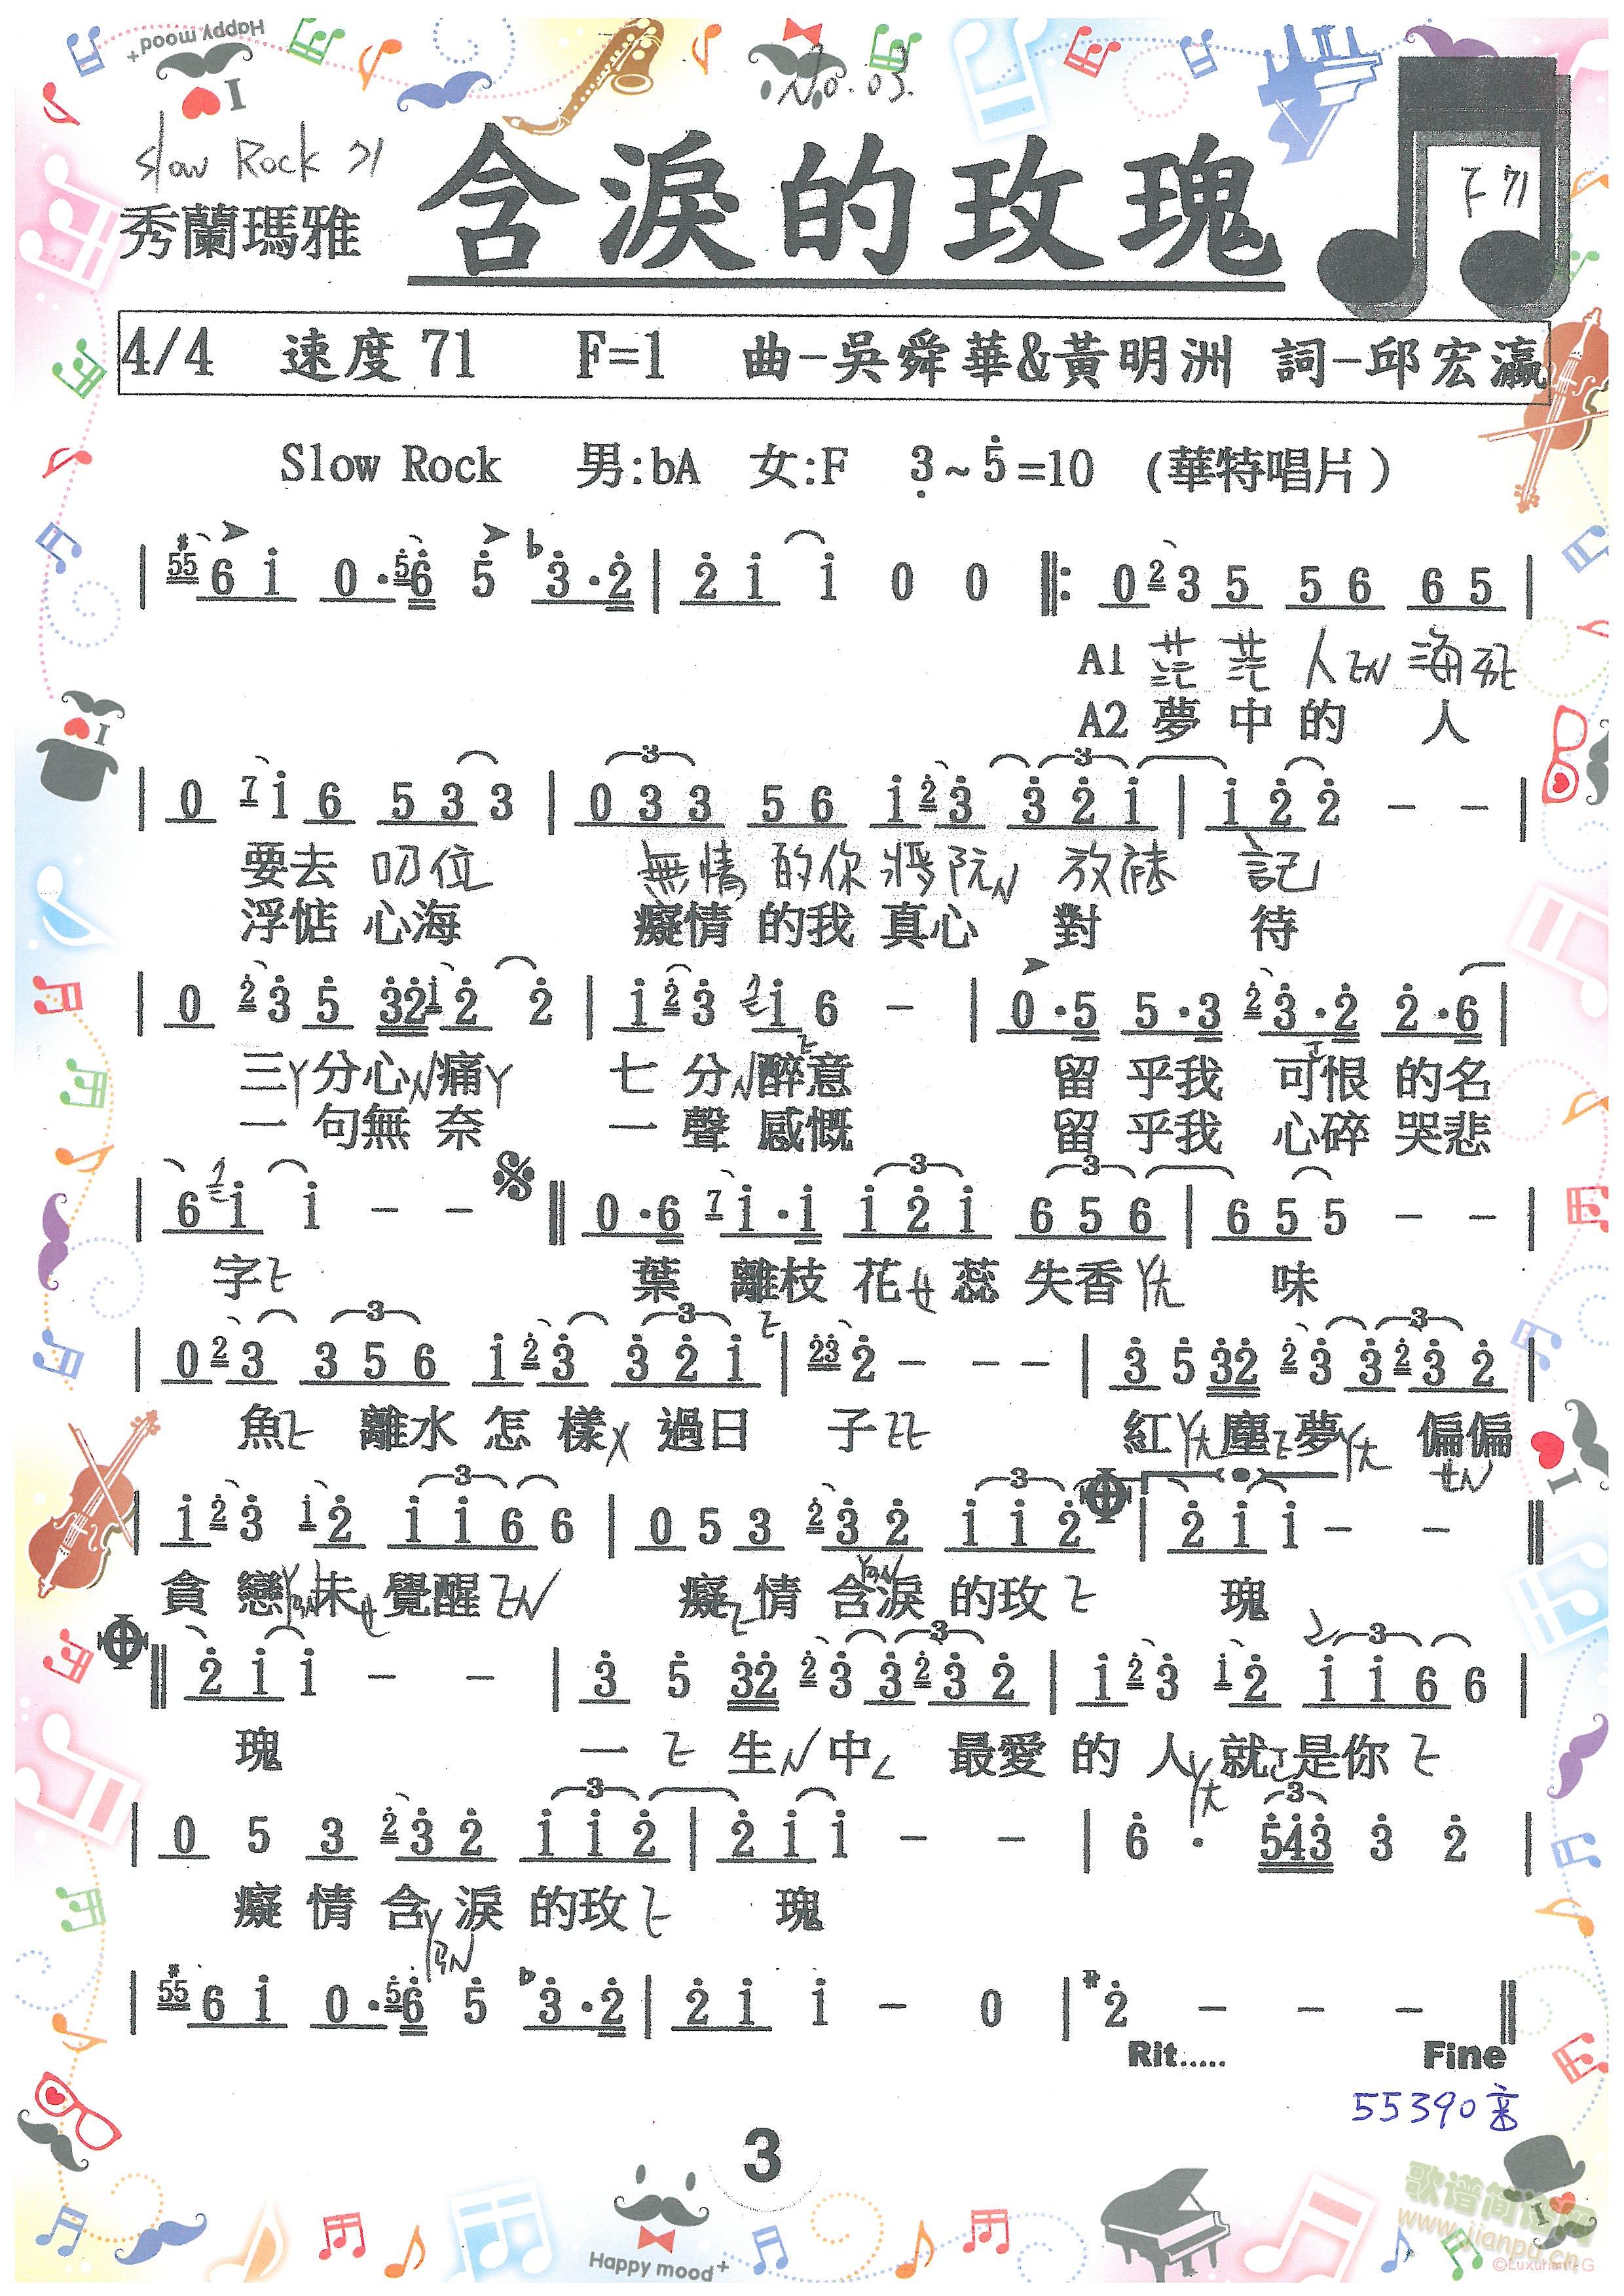 Happy mood+
I
No. 03.
slow Rock 71
秀蘭瑪雅
含淚的玫瑰
F 71
4/4 速度 71 F=1 曲-吳舜華&黃明洲 詞-邱宏瀛
Slow Rock 男:bA 女:F 3~5=10 (華特唱片)
| #55 6 1 0·56 5 b3·2 | 2 1 1 0 0 ‖: 0 2 3 5 5 6 6 5 |
A1 茫 茫 人 海
A2 夢 中 的 人
| 0 7 1 6 5 3 3 | 0 3 3 5 6 1 2 3 3 2 1 | 1 2 2 - - |
要去 叨位 無情 的你 將阮 放袂 記
浮惦 心海 癡情 的我 真心 對 待
| 0 2 3 5 32 1 2 2 | 1 2 3 2 1 6 - | 0·5 5·3 2 3·2 2·6 |
三 分心 痛 七 分 醉意 留 乎我 可恨 的名
一 句無 奈 一 聲 感慨 留 乎我 心碎 哭悲
| 6 2 1 1 - - ‖ 0·6 7 1·1 1 2 1 6 5 6 | 6 5 5 - - |
字 葉 離枝 花 蕊 失香 味
| 0 2 3 3 5 6 1 2 3 3 2 1 | 23 2 - - - | 3 5 32 2 3 3 2 3 2 |
魚 離水 怎 樣 過日 子 紅 塵 夢 偏偏
| 1 2 3 1 2 1 1 6 6 | 0 5 3 2 3 2 1 1 2 | 2 1 1 - - ‖
貪 戀 未 覺醒 癡 情 含淚 的玫 瑰
‖ 2 1 1 - - | 3 5 32 2 3 3 2 3 2 | 1 2 3 1 2 1 1 6 6 |
瑰 一 生 中 最愛 的 人 就 是你
| 0 5 3 2 3 2 1 1 2 | 2 1 1 - - | 6 · 543 3 2 |
癡 情 含 淚 的玫 瑰
| #55 6 1 0·56 5 b3·2 | 2 1 1 - 0 | #2 - - - ‖
Rit..... Fine
55390
3
Happy mood+
歌谱简谱网
www.jianpu.cn